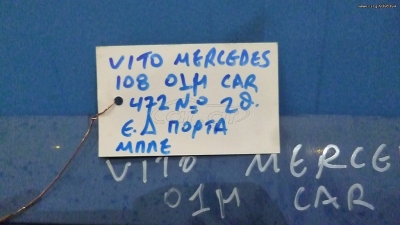 VITO MERCEDES
108 01M CAR
472 Nº 2θ.
Ε.Δ ΠΟΡΤΑ
ΜΠΛΕ
VITO MERCE
01M CAR